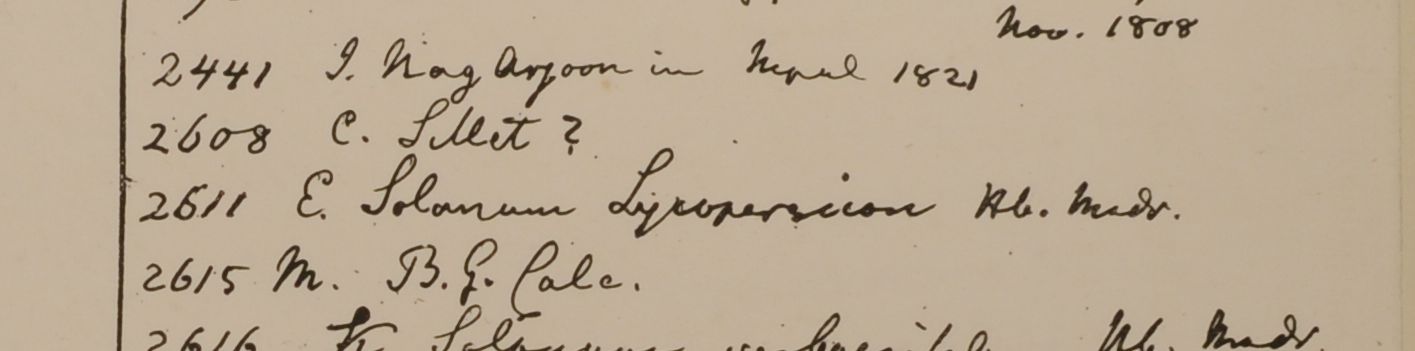 Nov. 1808
2441 I. Nag Arjoon in Nepal 1821
2608 C. Sillet ?
2611 E. Solanum Lycopersicon Hb. Madr.
2615 M. B. G. Calc.
2616 Solanum Hb. Madr.